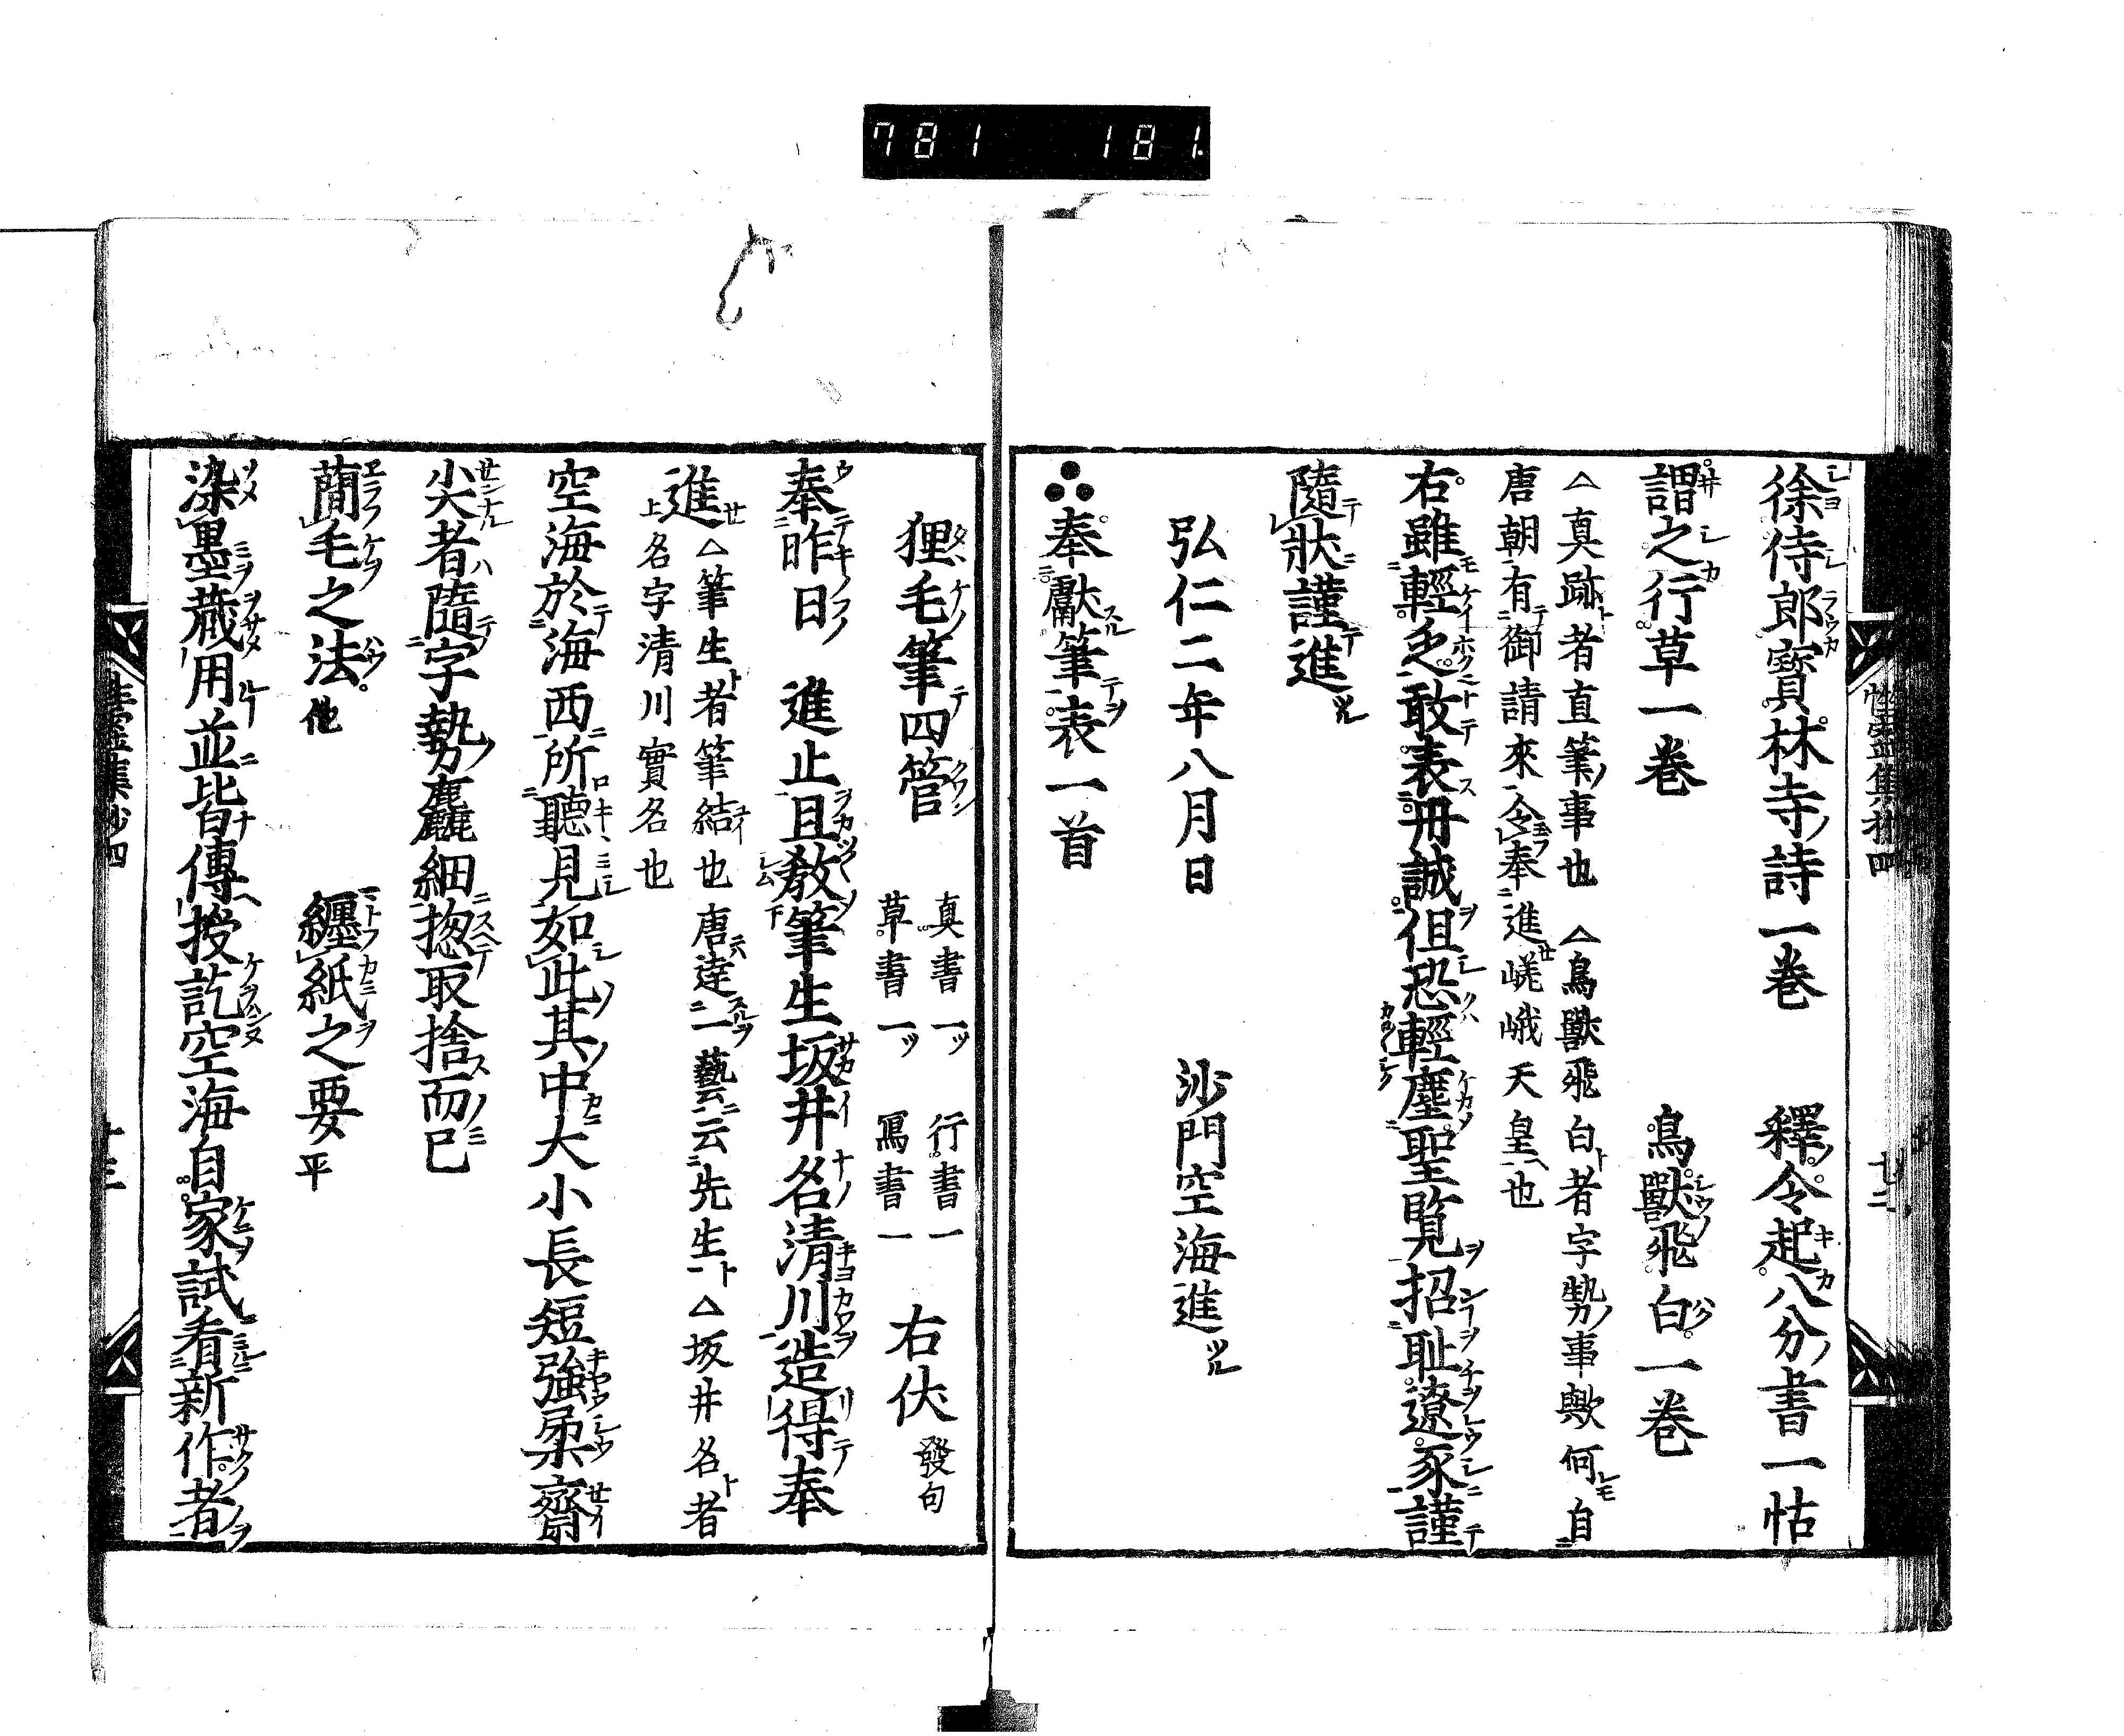 781 181
徐侍郎寳林寺詩一巻 釋令起八分書一怗
謂之行草一巻 鳥獸飛白一巻
△真跡者直筆事也 △鳥獸飛白者字勢事歟何自
唐朝有御請來令奉進嵯峨天皇也
右雖輕乏敢表丹誠伹恐輕塵聖覧招耻遼豕謹
隨狀謹進
弘仁二年八月日 沙門空海進
奉獻筆表一首
狸毛筆四管 真書一 行書一 草書一 寫書一 右伏 發句
奉昨日 進止且教筆生坂井名清川造得奉
進 △筆生者筆結也 唐達一藝云先生 △坂井名者
上名字清川實名也
空海於海西所聽見如此其中大小長短強柔齋
尖者隨字勢麁細揔取捨而已
蕳毛之法 他 纒紙之要 平
染墨蔵用並皆傳授訖空海自家試看新作者
性霊集抄四 廿二
性霊集抄四 廿三